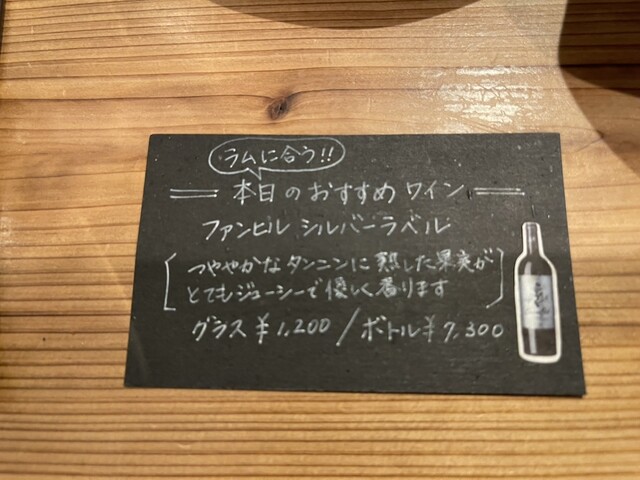 ラムに合う!!
本日のおすすめワイン
ファンヒル シルバーラベル
つややかなタンニンに熟した果実が
とてもジューシーで優しく香ります
グラス ¥1,200 / ボトル ¥7,300